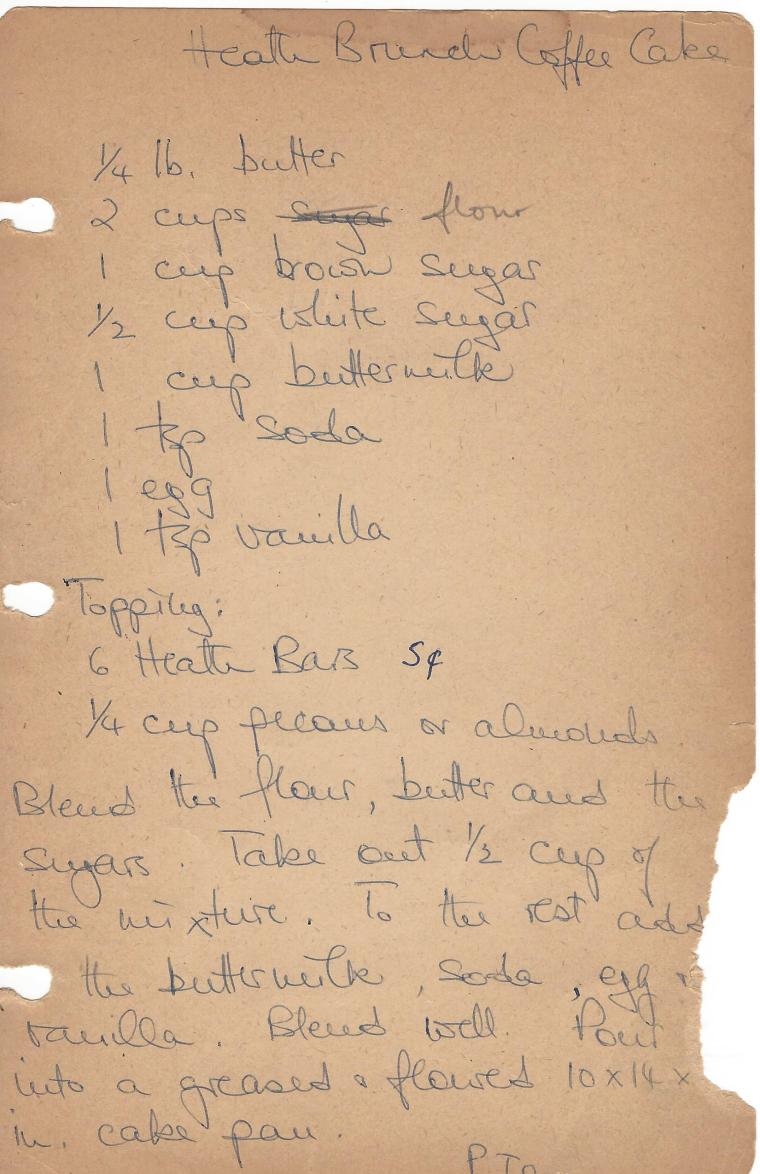 Heath Brunch Coffee Cake
1/4 lb. butter
2 cups sugar flour
1 cup brown sugar
1/2 cup white sugar
1 cup buttermilk
1 tsp soda
1 egg
1 tsp vanilla
Topping:
6 Heath Bars 5¢
1/4 cup pecans or almonds
Blend the flour, butter and the
sugars. Take out 1/2 cup of
the mixture. To the rest add
the buttermilk, soda, egg
vanilla. Blend well. Pour
into a greased & flowred 10x14x
in. cake pan.
P.T.O